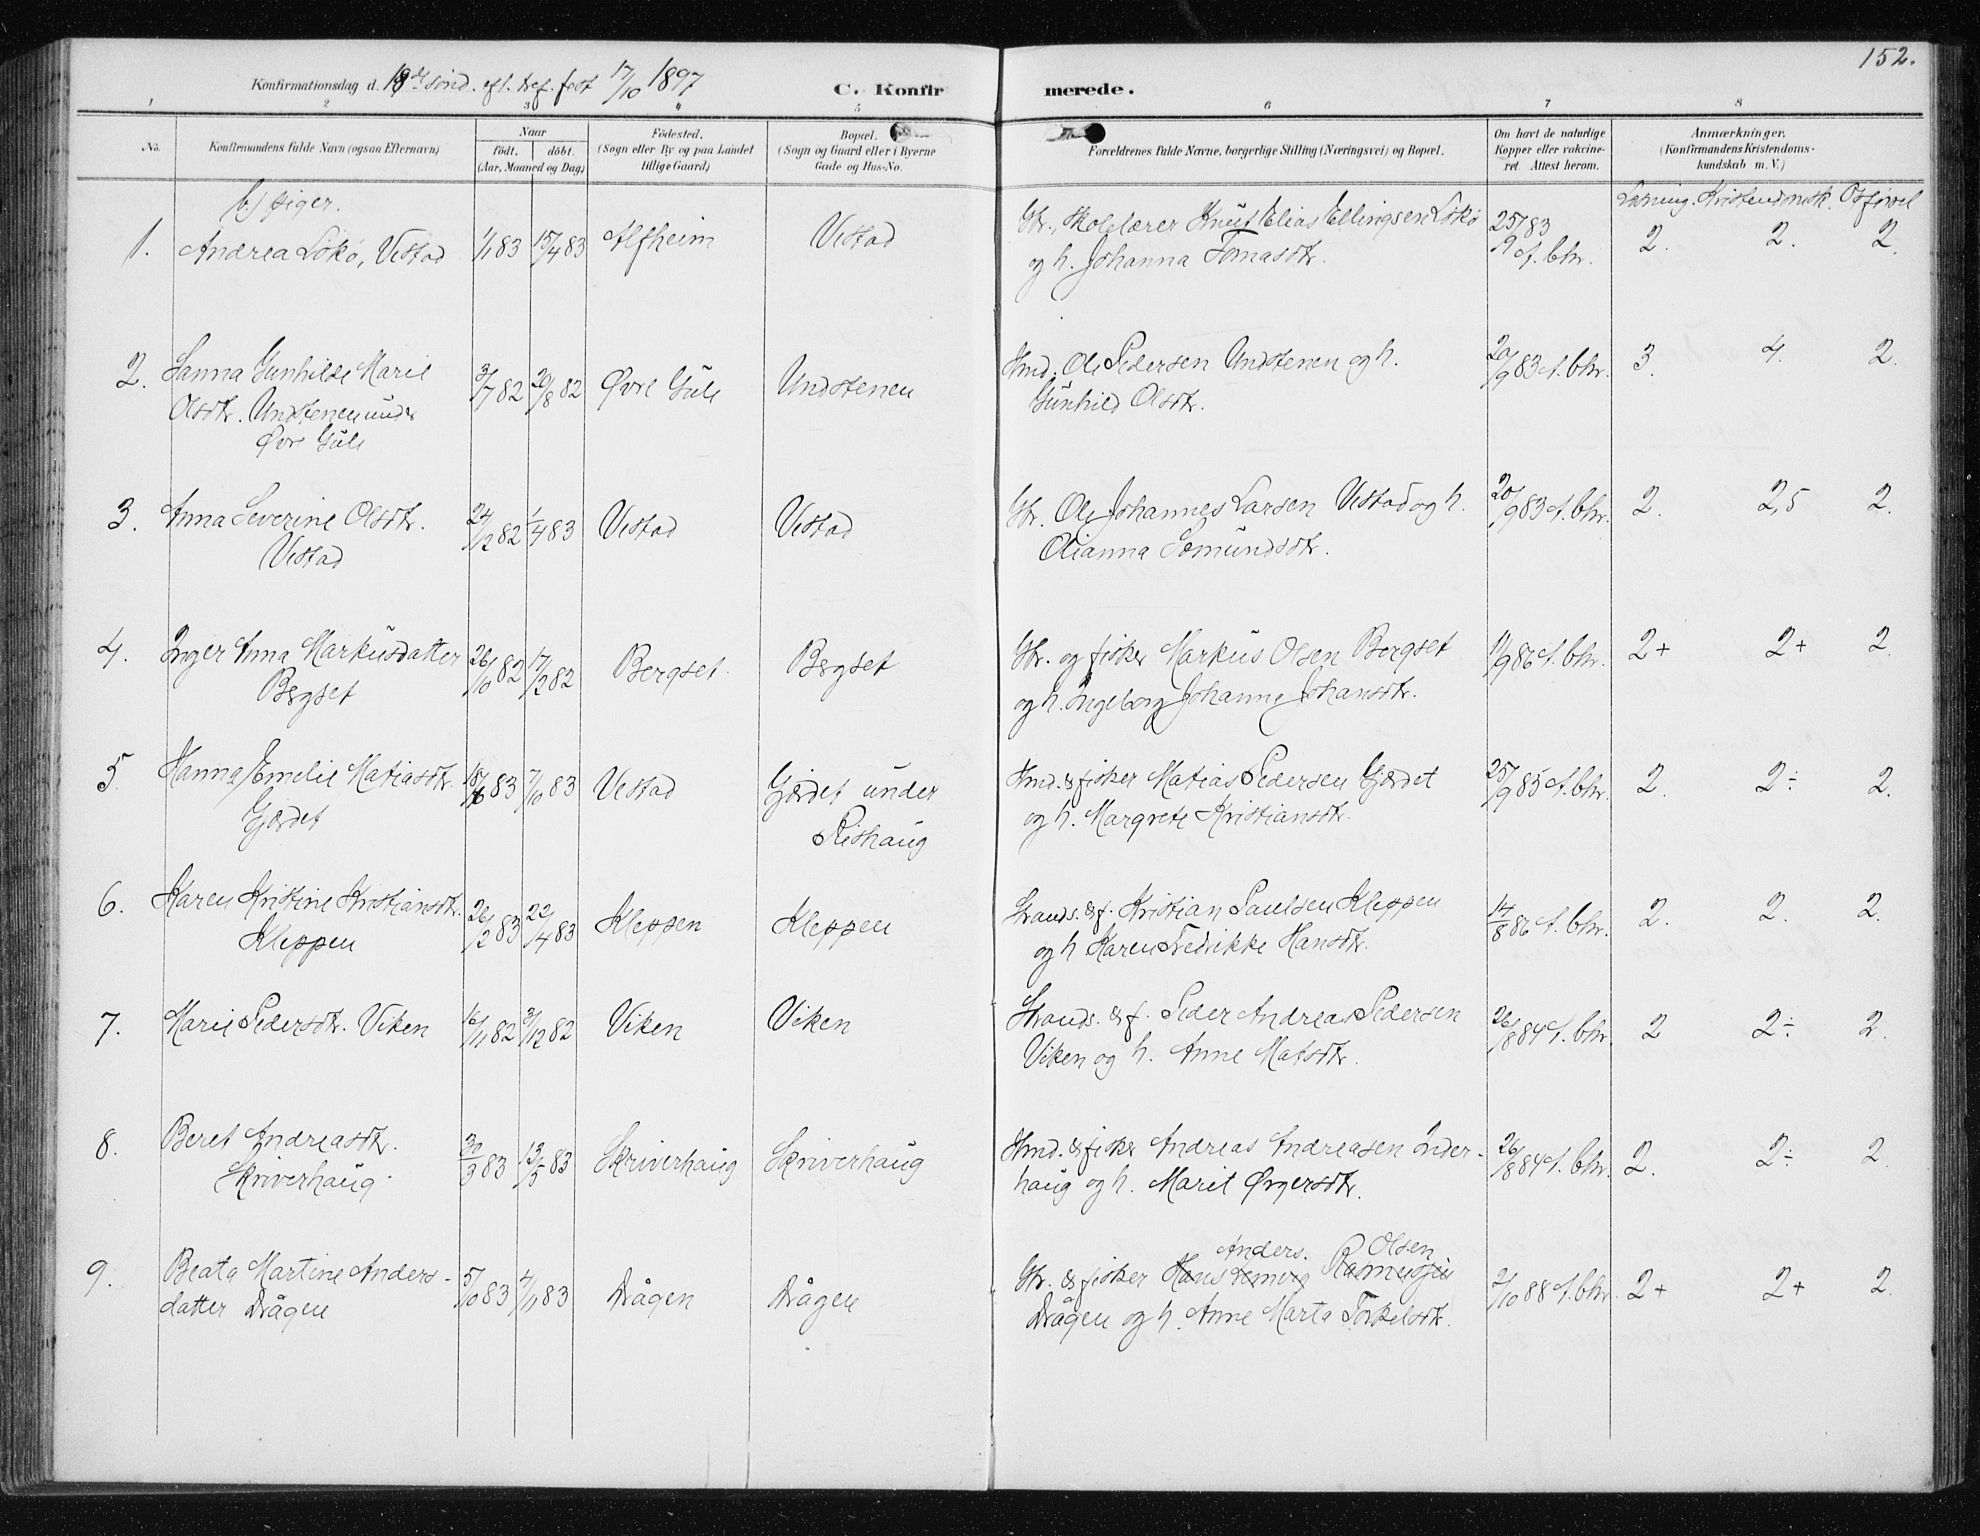 152.
Konfirmationsdag d. 18de sönd. eft. tref. fest 17/10 1897
C. Konfirmerede.
1 2 3 4 5 6 7 8
No.
Konfirmandens fulde Navn (ogsaa Efternavn)
Naar
födt. döbt.
(Aar, Maaned og Dag)
Födested.
(Sogn eller By og paa Landet
tillige Gaard)
Bopæl.
(Sogn og Gaard eller i Byerne
Gade og Hus-No.
Forældrenes fulde Navne, borgerlige Stilling (Næringsvei) og Bopæl.
Om havt de naturlige
Kopper eller vakcine-
ret. Attest herom.
Anmærkninger.
(Konfirmandens Kristendoms-
kundskab m. V.)
b.) piger.
Læsning. Kristendomsk. Opførsel
1. Andrea Lökö, Vestad 1/1 83 15/4 83 Alfheim Vestad Gbr., skolelærer Knut Elias Ellingsen Lökö 25/9 83 A. bhr. 2. 2. 2.
og h. Johanna Tomasdtr.
2. Sanna Gunhilde Marie 3/7 82 20/8 82 Øvre Gule Undstenen Hmd. Ole Pedersen Undstenen og h. 20/9 83 A. bhr. 3. 4. 2.
Olsdtr. Undstenen under Gunhild Olsdtr.
Øvre Gule
3. Anna Severine Olsdtr. 24/12 82 1/4 83 Vestad Vestad Gbr. Ole Johannes Larsen Vestad og h. 20/9 83 A. bhr. 2. 2,5 2.
Vestad Olianna Gomundsdtr.
4. Inger Anna Markusdatter 26/10 82 17/12 82 Bergset. Bergset Gbr. og fisker Markus Olsen Bergset 11/9 86 A. bhr. 2+ 2+ 2.
Bergset og h. Ingeborg Johanna Johansdtr.
5. Hanna Emelie Matiasdtr. 18/6 83 7/10 83 Vestad Gjerdet under Hmd. & fisker Matias Pedersen Gjerdet 25/9 85 A. bhr. 2. 2÷ 2.
Gjerdet Rishaug og h. Margrete Kristiansdtr.
6. Karen Kristine Kristiansdtr. 26/2 83 22/4 83 Kleppen Kleppen Strands. & f. Kristian Paulsen Kleppen 14/8 86 A. bhr. 2. 2. 2.
Kleppen og h Karen Fredrikke Hansdtr.
7. Marie Pedersdtr. Viken 16/11 82 31/12 82 Viken Viken Strands. & f. Peder Andreas Pedersen 26/8 84 A. bhr. 2 2÷ 2.
Viken og h. Anne Matsdtr.
8. Beret Andreasdtr. 30/3 83 13/5 83 Skriverhaug Skriverhaug Hmd. & fisker Andreas Andreasen Inder- 26/8 84 A. bhr. 2. 2÷ 2.
Skriverhaug. haug og h. Marit Ørgersdtr.
Anders. Olsen
9. Beata Martine Anders- 5/10 83 4/11 83 Drågen Drågen Gbr. & fisker Hans Rasmussen 2/10 88 A. bhr. 2+ 2+ 2.
datter Drågen Drågen og h. Anne Marta Torkelsdtr.